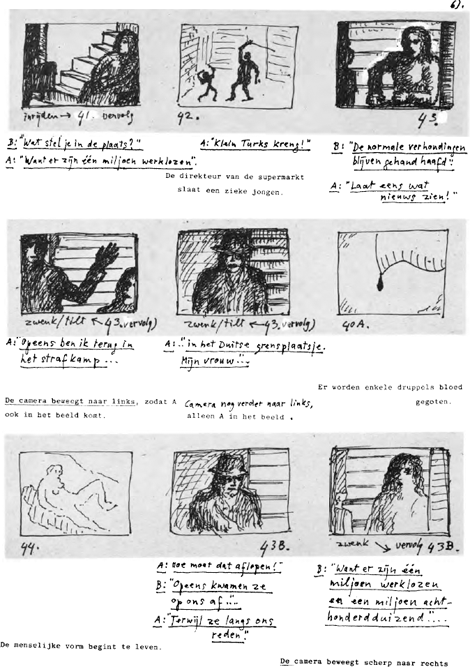 6).
inrijden → 41. vervolg
42.
43.
B: "Wat stel je in de plaats?"
A: "Want er zijn één miljoen werklozen".
A: "Klein Turks kreng!"
De direkteur van de supermarkt
slaat een zieke jongen.
B: "De normale verhoudingen
blijven gehandhaafd".
A: "Laat eens wat
nieuws zien!"
zwenk/tilt ← 43. vervolg)
zwenk/tilt ← 43. vervolg)
40A.
A: "Opeens ben ik terug in
het strafkamp ...
A: .."in het Duitse grensplaatsje.
Mijn vrouw"..
Er worden enkele druppels bloed
gegoten.
De camera beweegt naar links, zodat A
ook in het beeld komt.
Camera nog verder naar links,
alleen A in het beeld.
44.
43B.
zwenk ↘ vervolg 43B.
A: Hoe moet dat aflopen!"
B: "Opeens kwamen ze
op ons af"..
A: "Terwijl ze langs ons
reden."
B: "Want er zijn één
miljoen werklozen
en een miljoen acht-
honderdduizend"....
De menselijke vorm begint te leven.
De camera beweegt scherp naar rechts